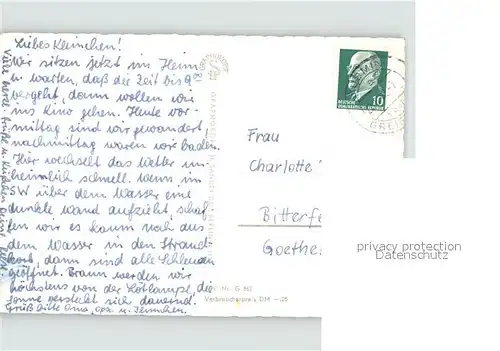 Liebes Kleinchen!
Wir sitzen jetzt im Heim
u. warten, daß die Zeit bis 9
vergeht, dann wollen wir
ins Kino gehen. Heute vor-
mittag sind wir gewandert,
nachmittag waren wir baden.
Hier wechselt das Wetter un-
heimlich schnell. Wenn im
SW über dem Wasser eine
dunkle Wand aufzieht, schaf-
fen wir es kaum noch aus
dem Wasser in den Strand-
korb, dann sind alle Schleusen
geöffnet. Braun werden wir
höchstens von der Lötlampe, die
Sonne versteckt sich dauernd.
Grüß bitte Oma, Opa u.
Viele herzl. Grüße u. Küßchen
DEUTSCHE
DEMOKRATISCHE REPUBLIK
10
Frau
Charlotte
Bitterfe
Goethe
Verbraucherpreis DM
privacy protection
watermark